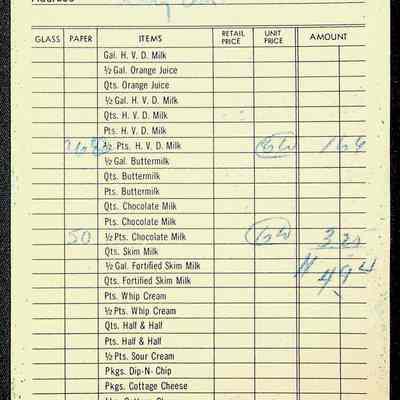 GLASS PAPER ITEMS RETAIL PRICE UNIT PRICE AMOUNT
Gal. H. V. D. Milk
½ Gal. Orange Juice
Qts. Orange Juice
½ Gal. H. V. D. Milk
Qts. H. V. D. Milk
Pts. H. V. D. Milk
½ Pts. H. V. D. Milk
½ Gal. Buttermilk
Qts. Buttermilk
Pts. Buttermilk
Qts. Chocolate Milk
Pts. Chocolate Milk
50 ½ Pts. Chocolate Milk
Qts. Skim Milk
½ Gal. Fortified Skim Milk
Qts. Fortified Skim Milk
Pts. Whip Cream
½ Pts. Whip Cream
Qts. Half & Half
Pts. Half & Half
½ Pts. Sour Cream
Pkgs. Dip-N- Chip
Pkgs. Cottage Cheese